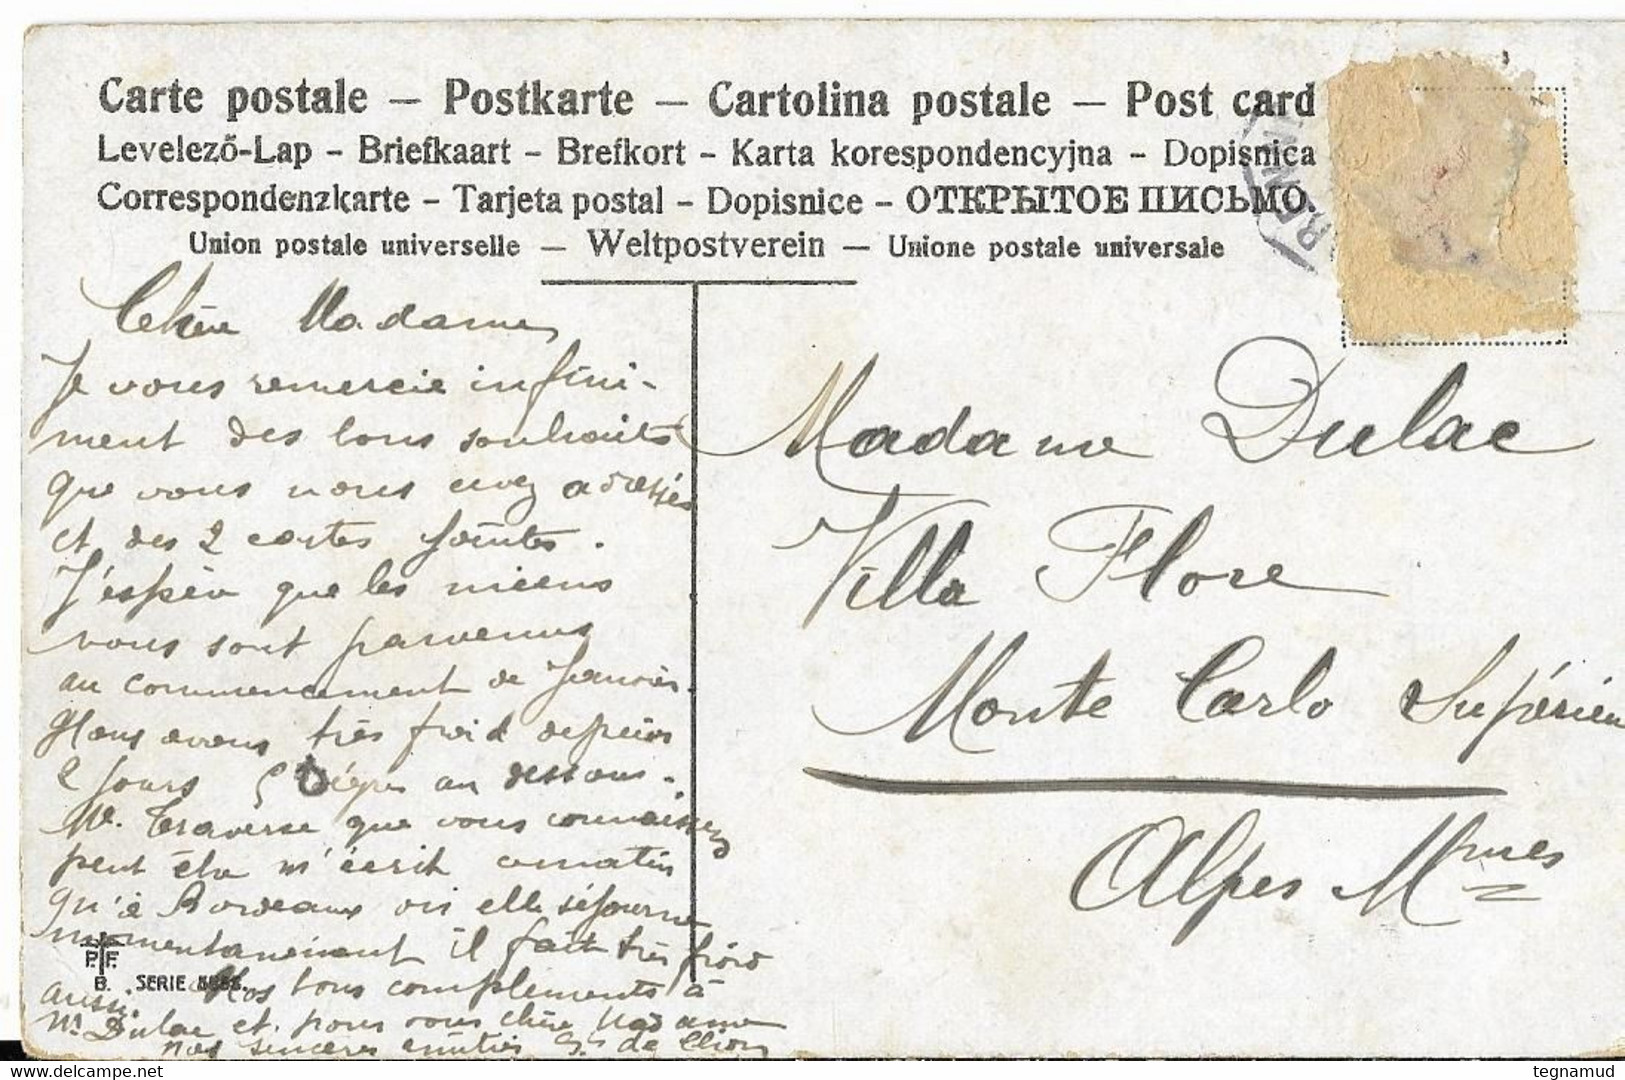 Carte postale — Postkarte — Cartolina postale — Post card
Levelező-Lap - Briefkaart - Brefkort - Karta korespondencyjna - Dopisnica
Correspondenzkarte - Tarjeta postal - Dopisnice - ОТКРЫТОЕ ПИСЬМО.
Union postale universelle — Weltpostverein — Unione postale universale
Chère Madame,
Je vous remercie infini-
ment des bons souhaits
que vous nous avez adressés
et des 2 cartes jointes.
J'espère que les miens
vous sont parvenus
au commencement de Janvier.
Nous avons très froid depuis
2 jours degrés au dessous.
Me. Traverse que vous connaissez
peut être m'écrit ce matin
qu'à Bordeaux où elle séjourne
momentanément il fait très froid
aussi. Nos bons compliments à
Mr Dulac et pour vous chère Madame
nos sincères amitiés
Madame Dulac
Villa Flore
Monte Carlo Supérieur
Alpes Mmes
P.F.
B. SERIE
tegnamud